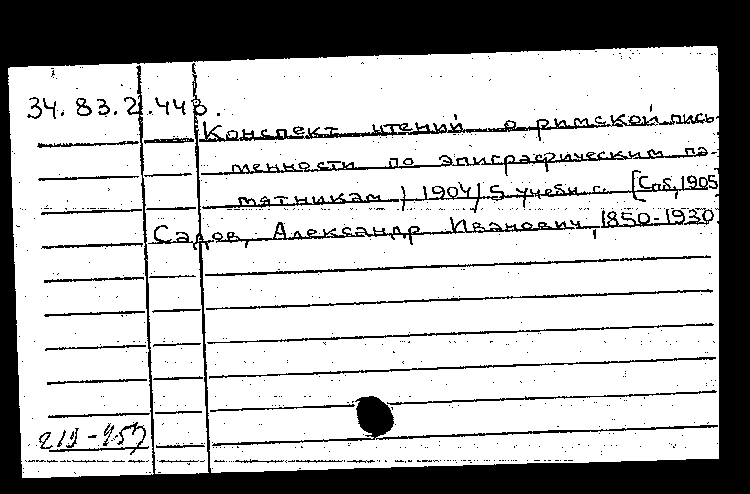 34.83.2.443.
Конспект чтений о римской пись-
менности по эпиграфическим па-
мятникам) 1904/5 учебн г. [Спб, 1905
Садов, Александр Иванович, 1850-1930.